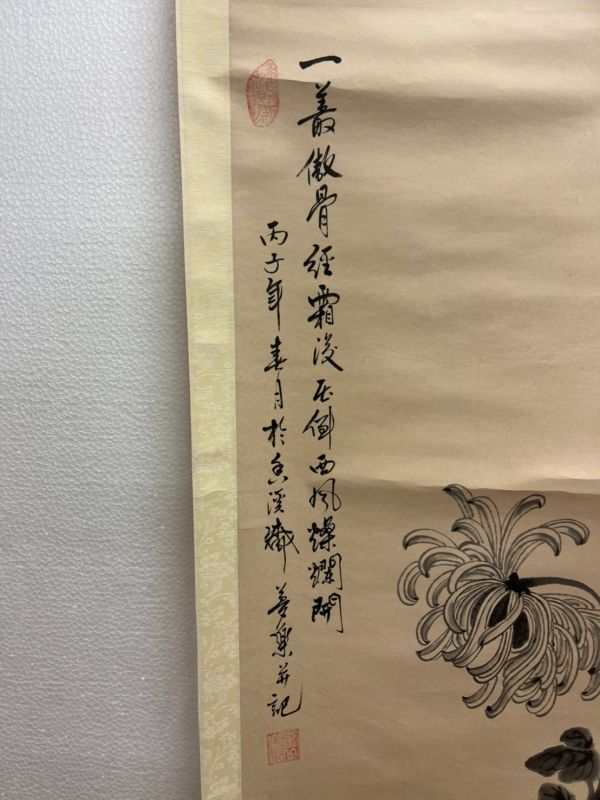 一叢傲骨經霜後 不倒西風燦爛開
丙子年春月於 溪 善樂并記